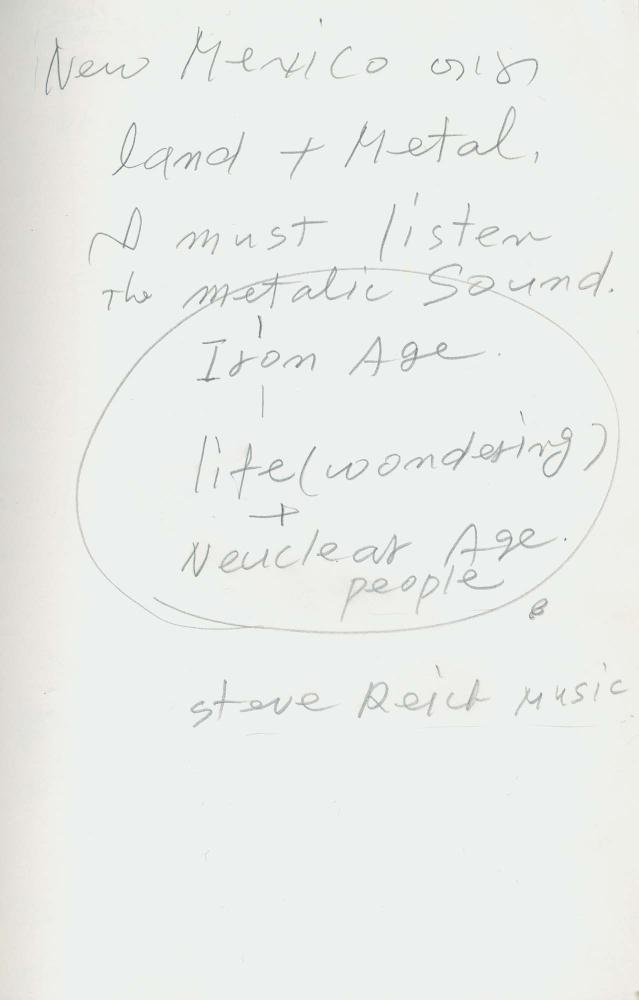 New Mexico
land + Metal,
I must listen
The metalic Sound.
Iron Age.
life (wondering)
+
Neuclear Age.
people
Steve Reich music